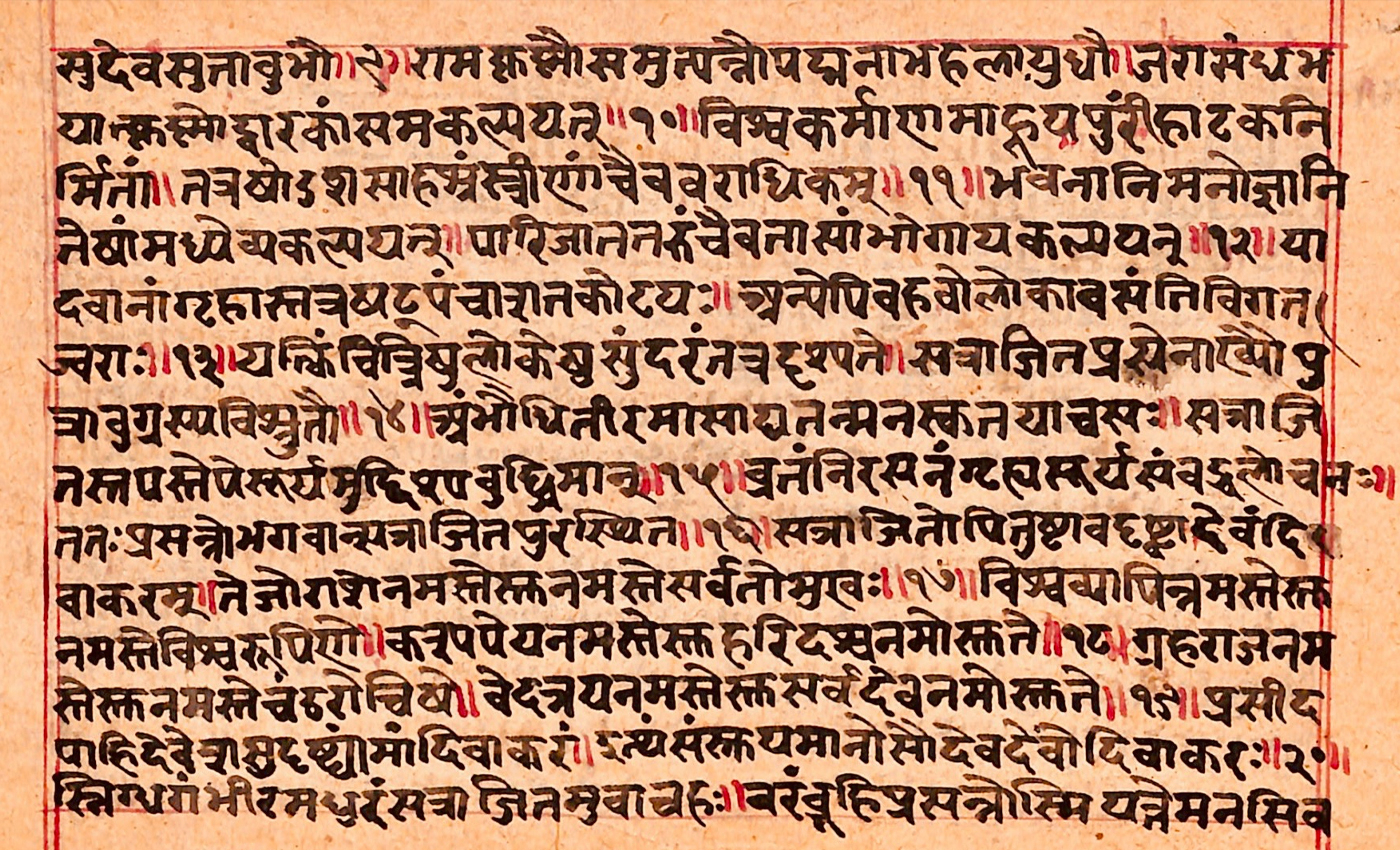 सुदेवसुतावुभौ॥९॥रामकृष्णौसमुत्पन्नौपद्मनाभहलायुधौ॥जरासंधभ
यात्कृष्णोद्वारकांसमकल्पयत्॥१०॥विश्वकर्माणमाहूयपुरींहाटकनि
र्मितां॥तत्रषोडशसाहस्रंस्त्रीणांचैववराधिकम्॥११॥भवनानिमनोज्ञानि
तेषांमध्येव्यकल्पयत्॥पारिजाततरुंचैवतासांभोगायकल्पयत्॥१२॥या
दवानांगृहास्तत्रषट्पंचाशतकोटयः॥अन्येपिबहवोलोकावसंतिविगत
ज्वराः॥१३॥यत्किंचित्त्रिषुलोकेषुसुंदरंतत्रदृश्यते॥सत्राजितप्रसेनाख्यौपु
त्रावुग्रस्यविश्रुतौ॥१४॥अंभौधितीरमासाद्यतन्मनस्कतयाचसः॥सत्राजि
तस्तपस्तेपेसूर्यमुद्दिश्यबुद्धिमान्॥१५॥व्रतंनिरसनंगृह्यसूर्यसंबद्धलोचनः॥
ततःप्रसन्नोभगवान्सत्राजितपुरस्थित॥१६॥सत्राजितोपितुष्टावदृष्ट्वादेवंदि
वाकरम्॥तेजोराशेनमस्तेस्तुनमस्तेसर्वतोमुखः॥१७॥विश्वव्यापिन्नमस्तेस्तु
नमस्तेविश्वरूपिणे॥कश्यपेयनमस्तेस्तुहरिदश्वनमोस्तुते॥१८॥ग्रहराजनम
स्तेस्तुनमस्तेचंडरोचिषे॥वेदत्रयनमस्तेस्तुसर्वदेवनमोस्तुते॥१९॥प्रसीद
पाहिदेवेशसुदृष्ट्यांमांदिवाकरां॥इत्थंसंस्तूयमानोसौदेवदेवोदिवाकरः॥२०॥
स्निग्धगंभीरमधुरंसत्राजितमुवाचहः॥वरंब्रूहिप्रसन्नोस्मियत्तेमनसिव